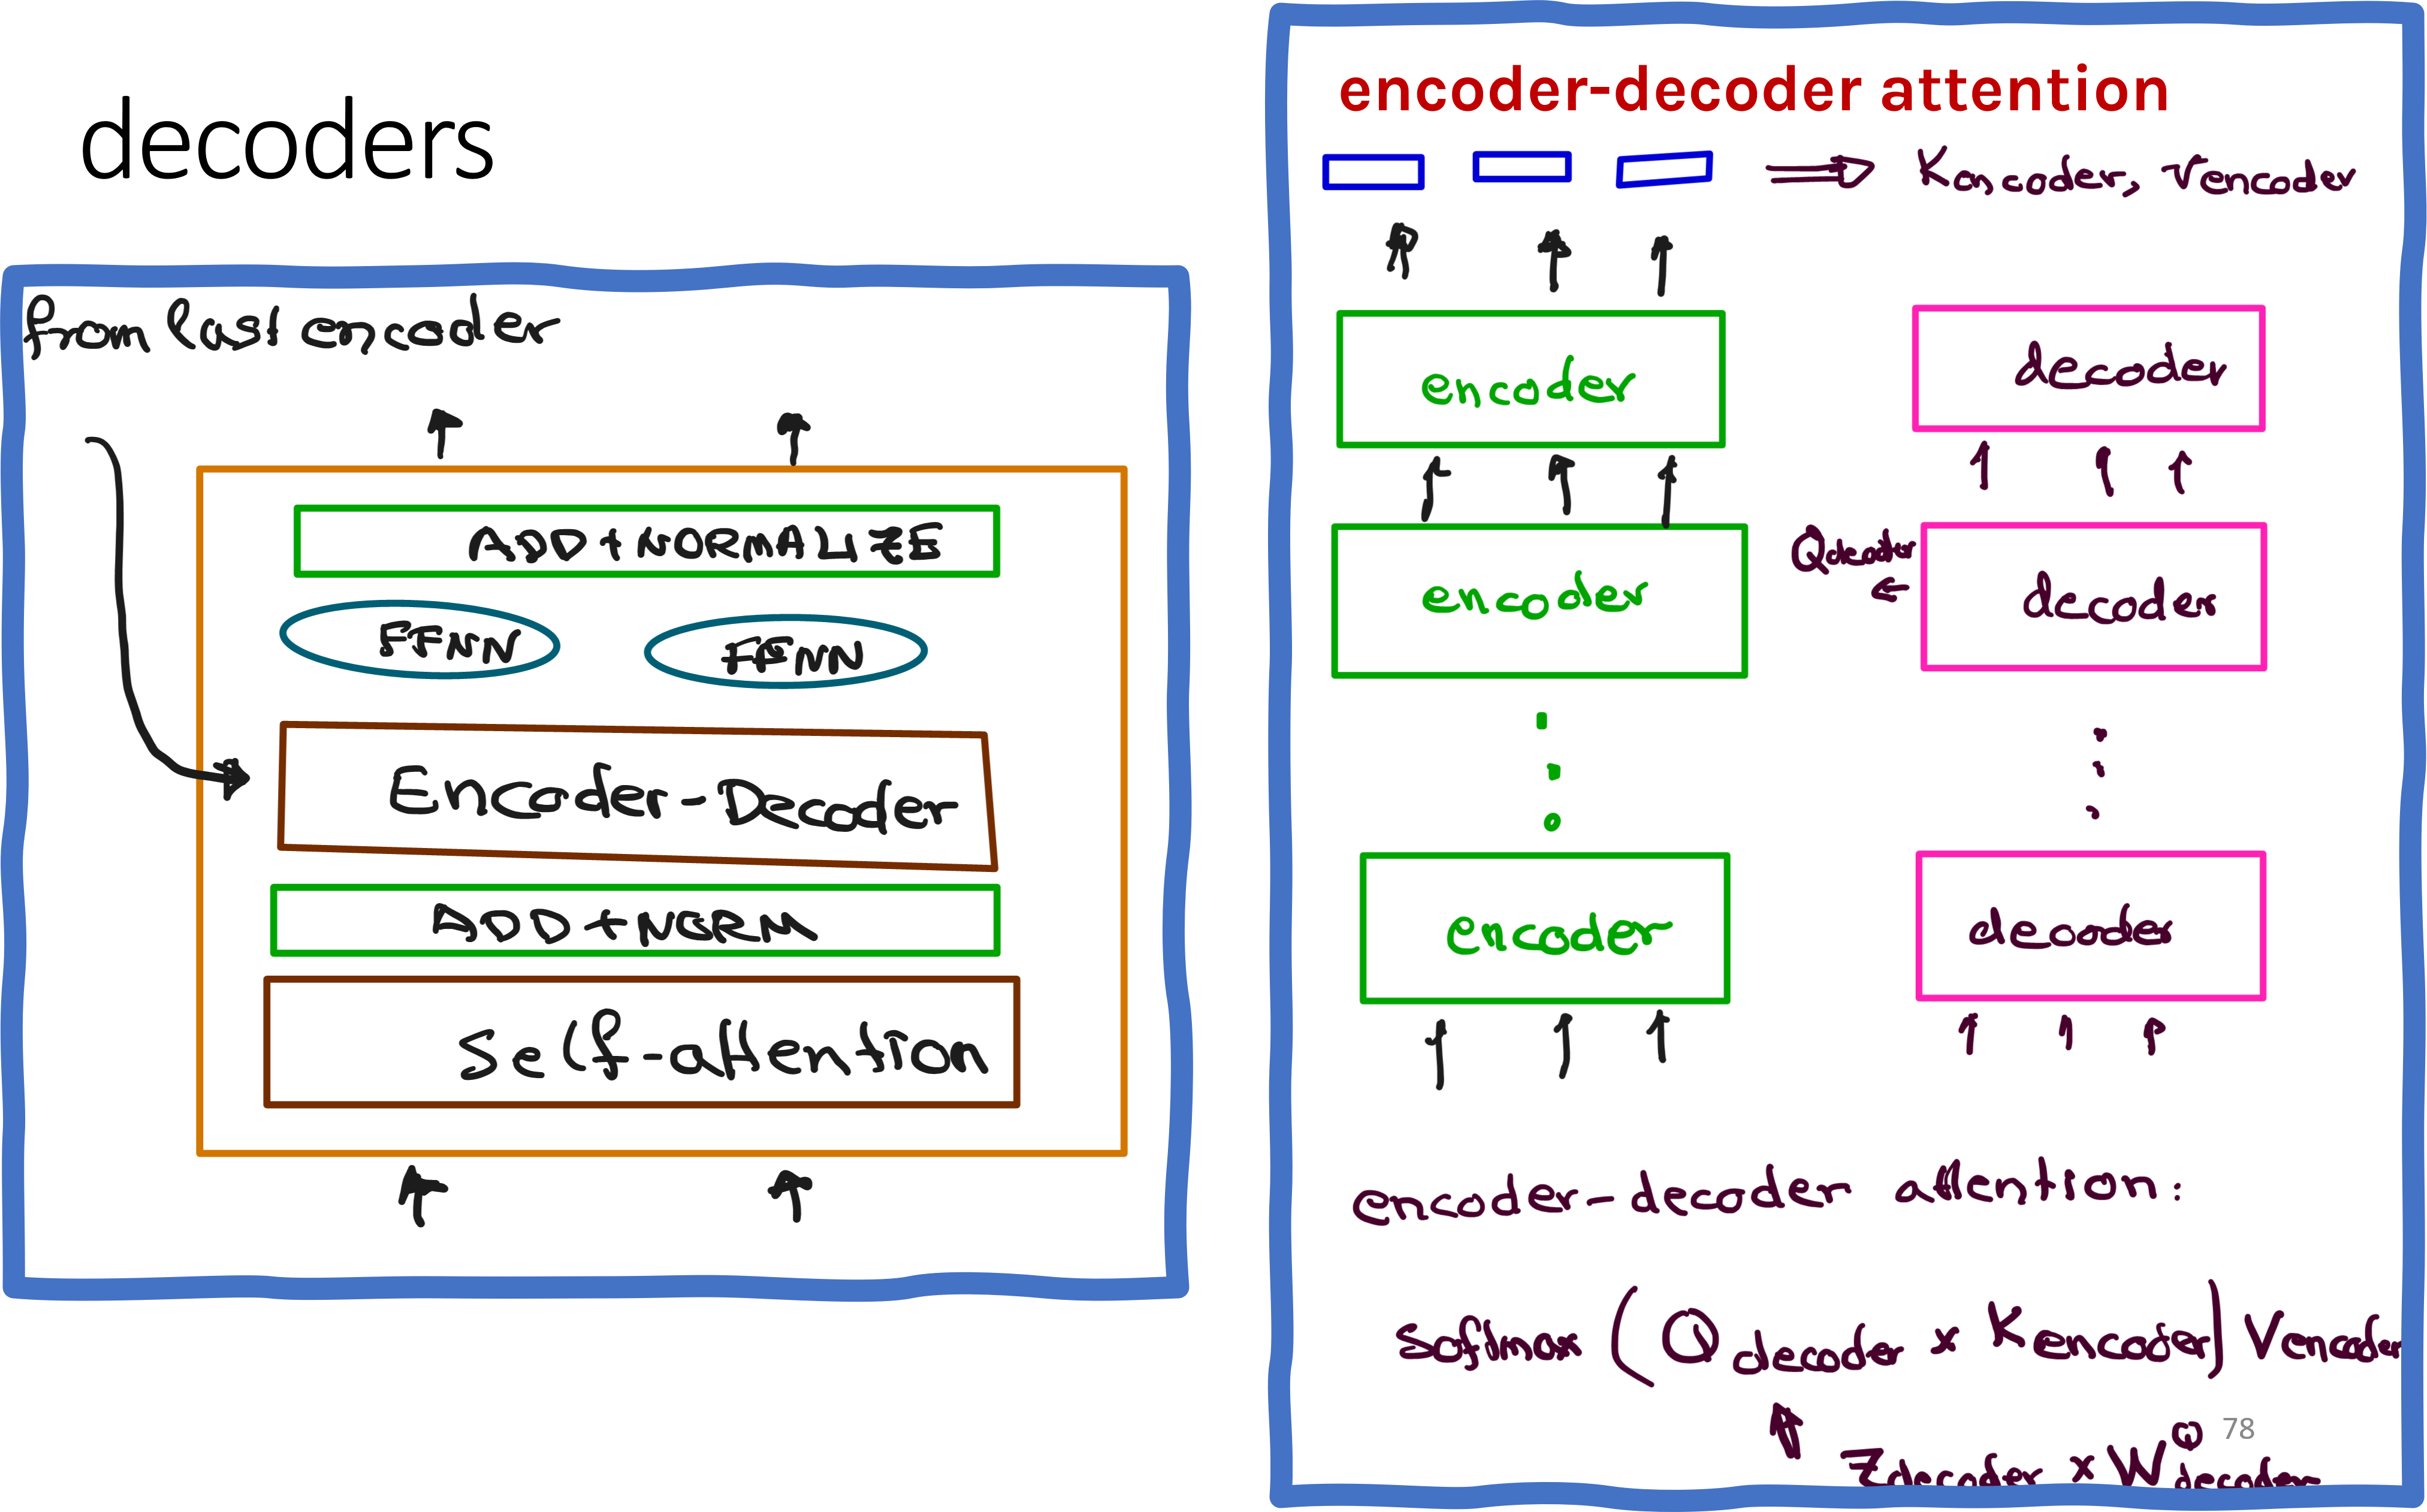 decoders
from last encoder
ADD+NORMALIZE
FFNN FFNN
Encoder-Decoder
ADD+NORM
Self-attention
encoder-decoder attention
Kencoder, Vencoder
encoder decoder
Qdecoder
encoder decoder
encoder decoder
encoder-decoder attention:
softmax (Qdecoder x Kencoder) Vencoder
Zdecoder x W^Q decoder
78